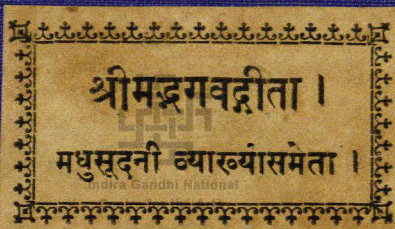 श्रीमद्भगवद्गीता ।
मधुसूदनी व्याख्यासमेता ।
Indira Gandhi National